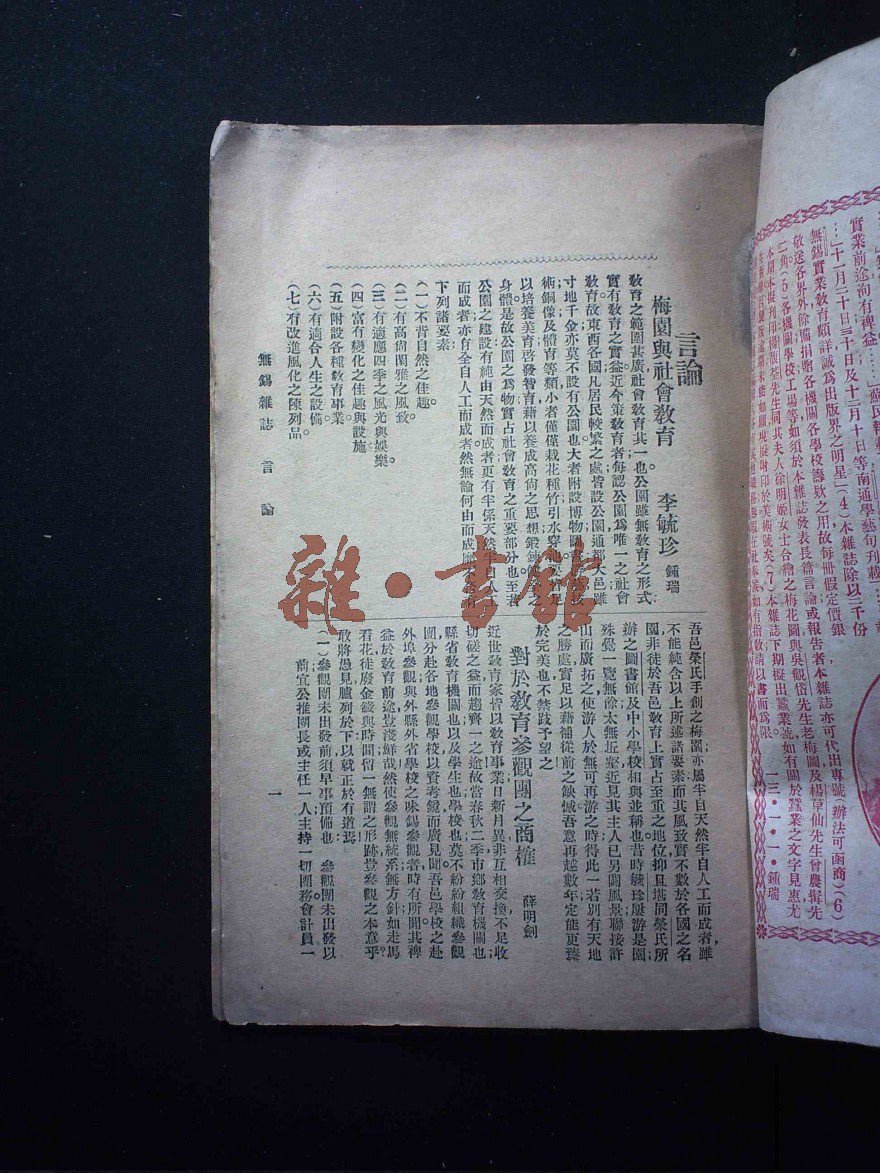 言論
梅園與社會教育　李毓珍 鍾瑞
教育之範圍甚廣社會教育其一也公園雖無教育之形式;
實有教育之實益近今策教育者每認公園爲唯一之社會
教育故東西各國凡居民較繁之處皆設公園通都大邑雖
寸地千金亦莫不設有公園也大者附設博物圖
術銅像及體育等類小者僅僅栽花種竹引水穿
以培養美育啓發智育藉以養成高尙之思想鍛鍊
身體是故公園之爲物實占社會教育之重要部分也至若
公園之建設有純由天然而成者更有半係天然半自人工
而成者亦有全自人工而成者然無論何由而成
下列諸要素
(一)不背自然之佳趣。
(二)有高尙閑雅之風致。
(三)有適應四季之風光與娛樂。
(四)富有變化之佳趣與設施
(五)附設各種教育事業
(六)有適合人生之設備。
(七)有改進風化之陳列品。
吾邑榮氏手創之梅園;亦屬半自天然半自人工而成者雖
不能純含以上所述諸要素而其風致實不數於各國之名
園非徒於吾邑教育上實占至重之地位抑且堪同榮氏所
辦之圖書館及中小學校相與並稱也昔時毓珍屢游是園
殊覺一覽無餘太無近鏨近見其主人已另闢風景聯接許
山而廣拓之使游人於無可再游之時得此一若別有天地
之勝處實足以藉補從前之缺憾吾意再越數年定能更臻
於完美也不禁跂予望之
對於教育參觀團之商榷　薛明劍
近世教育家皆以教育事業日新月異非互相交換不足收
切磋之益而趨齊一之途故當春秋二季市鄉教育機關也;
縣省教育機關也以及學生也學校也莫不紛紛組織參觀
團分赴各地參觀學校以資考鏡而廣見聞吾邑學校之赴
外埠參觀與外縣外省學校之味錫參觀者時有所聞其裨
益於教育前途豈淺鮮哉然使參觀無統系無方針如走馬
看花徒廢金錢與時間留一無謂之形跡豈參觀之本意乎?
敢將愚見臚列於下以就正於有道焉
(一)參觀團未出發前須早事預備也　參觀團未出發以
前宜公推團長或主任一人主持一切團務會計員一
無錫雜誌　言論
一
實業前途洵有裨益……」蘇民報載
…」十一月二十日三十日及十二月十日等南通學藝旬刊載
無錫實業教育頗詳誠爲出版界之明星」(4)本雜誌除以二千份
敬送各界外餘備捐贈各機關各學校籌欵之用故每册假定價銀
二角。(5)各機關學校工場等如須於本雜誌發表長篇言論或報告者本雜誌亦可代出專號(辦法可函商)(6)
先生同其夫人徐明姬女士合繪之梅花圖與吳觀岱先生老梅圖及楊草仙先生曾農髯先
附印於美術號矣(7)本雜誌下期擬出蠶業號如有關於蠶業之文字見惠尤
如有指教請以書面爲限
一三·一·一·鍾瑞
雜·書館